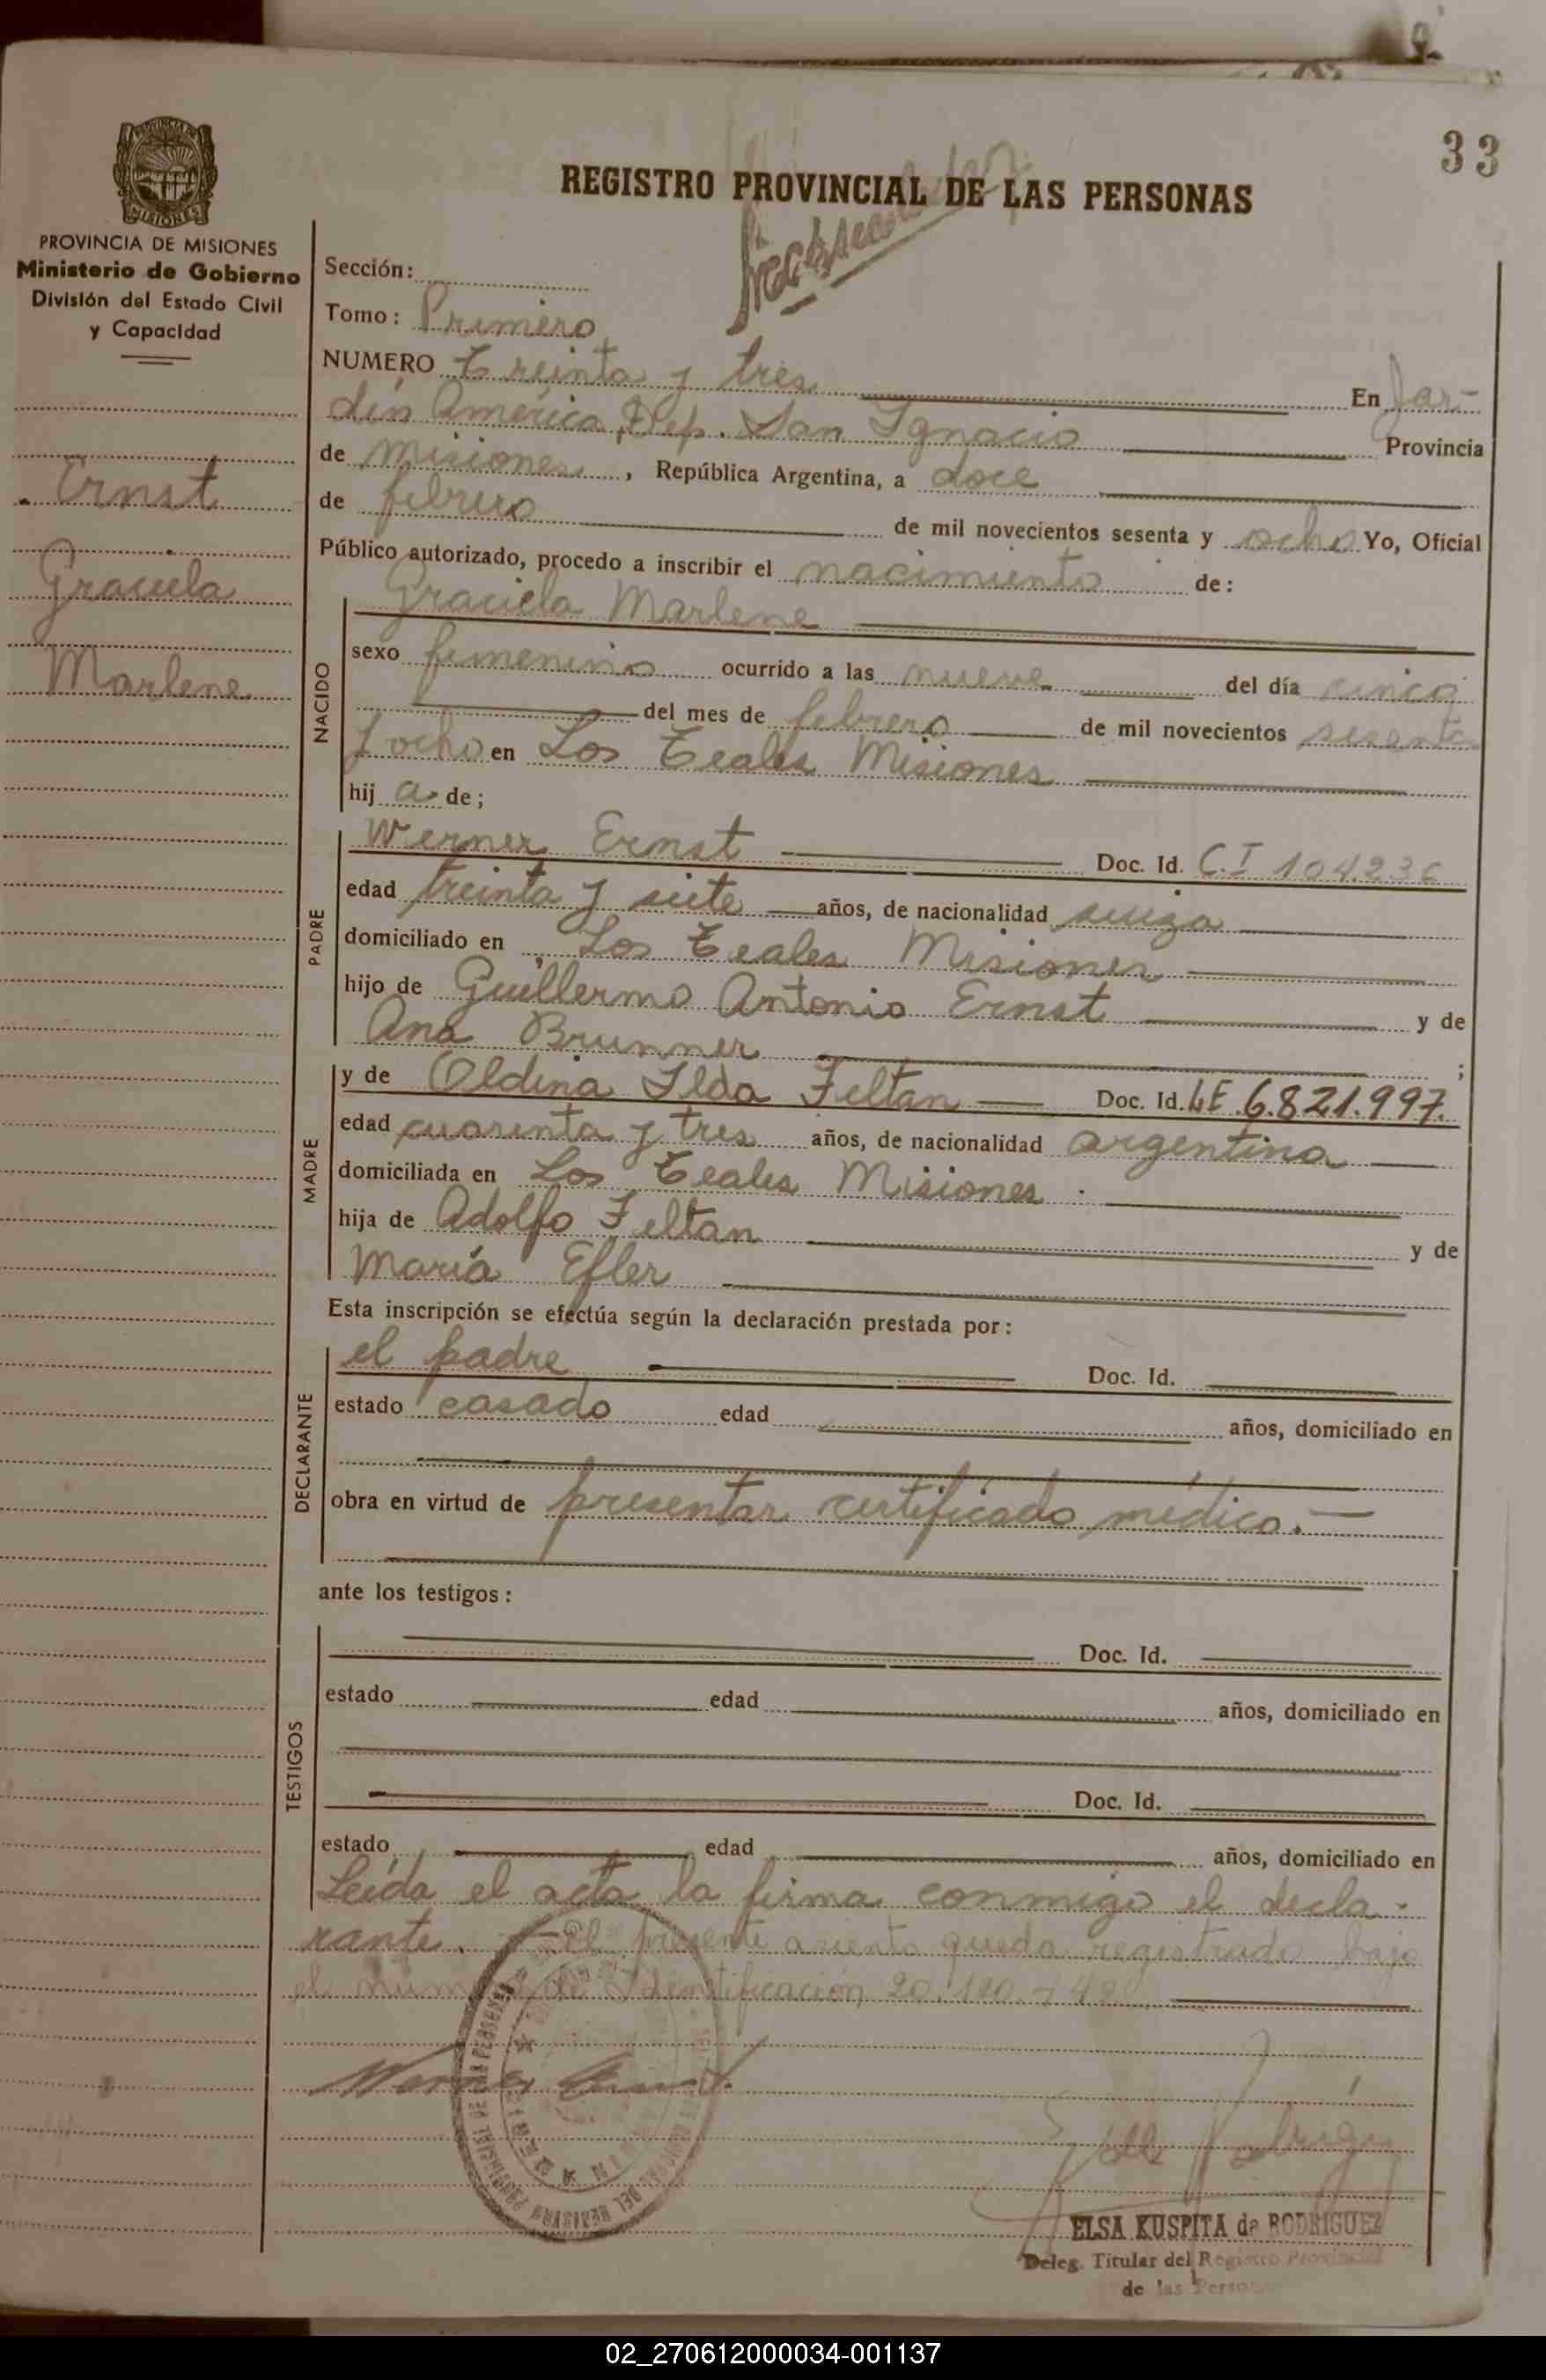 33
REGISTRO PROVINCIAL DE LAS PERSONAS
PROVINCIA DE MISIONES
Ministerio de Gobierno
División del Estado Civil
y Capacidad
Ernst
Graciela
Marlene
Sección:
Tomo: Primero
NUMERO Treinta y tres En Jar-
dín América, Dep. San Ignacio Provincia
de Misiones, República Argentina, a doce
de febrero de mil novecientos sesenta y ocho Yo, Oficial
Público autorizado, procedo a inscribir el nacimiento de:
NACIDO
Graciela Marlene
sexo femenino ocurrido a las nueve del día cinco
del mes de febrero de mil novecientos sesenta
y ocho en Los Teales Misiones
hij a de;
PADRE
Werner Ernst Doc. Id. C.I 104.236
edad treinta y siete años, de nacionalidad suiza
domiciliado en Los Teales Misiones
hijo de Guillermo Antonio Ernst y de
Ana Brunner ;
MADRE
y de Oldina Ilda Feltan Doc. Id. LE 6.821.997.
edad cuarenta y tres años, de nacionalidad argentina
domiciliada en Los Teales Misiones
hija de Adolfo Feltan y de
María Efler
Esta inscripción se efectúa según la declaración prestada por:
DECLARANTE
el padre Doc. Id.
estado casado edad años, domiciliado en
obra en virtud de presentar certificado médico.
ante los testigos:
TESTIGOS
Doc. Id.
estado edad años, domiciliado en
Doc. Id.
estado edad años, domiciliado en
Leída el acta la firma conmigo el decla-
rante. El presente asiento queda registrado bajo
el número de Identificación 20.120.742
Werner Ernst
ELSA KUSPITA de RODRIGUEZ
Deleg. Titular del Registro Provincial
de las Personas
02_270612000034-001137